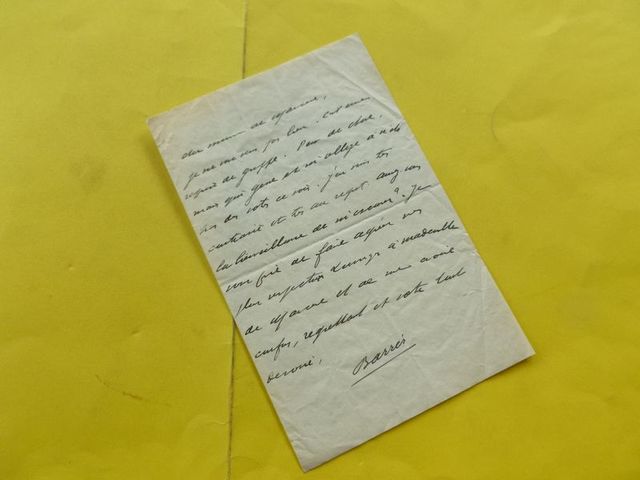 cher monsieur de
je ne me sens pas bien. C'est une
reprise de grippe. Peu de chose,
mais qui gêne et m'oblige à
ces soir. J'en suis très
contrarié et très au regret. Aurez-vous
la bienveillance de m'excuser? Je
vous prie de faire agréer mes
plus respectueux hommages à mademoiselle
de et de me croire
confus, regrettant et votre tout
dévoué,
Barrès